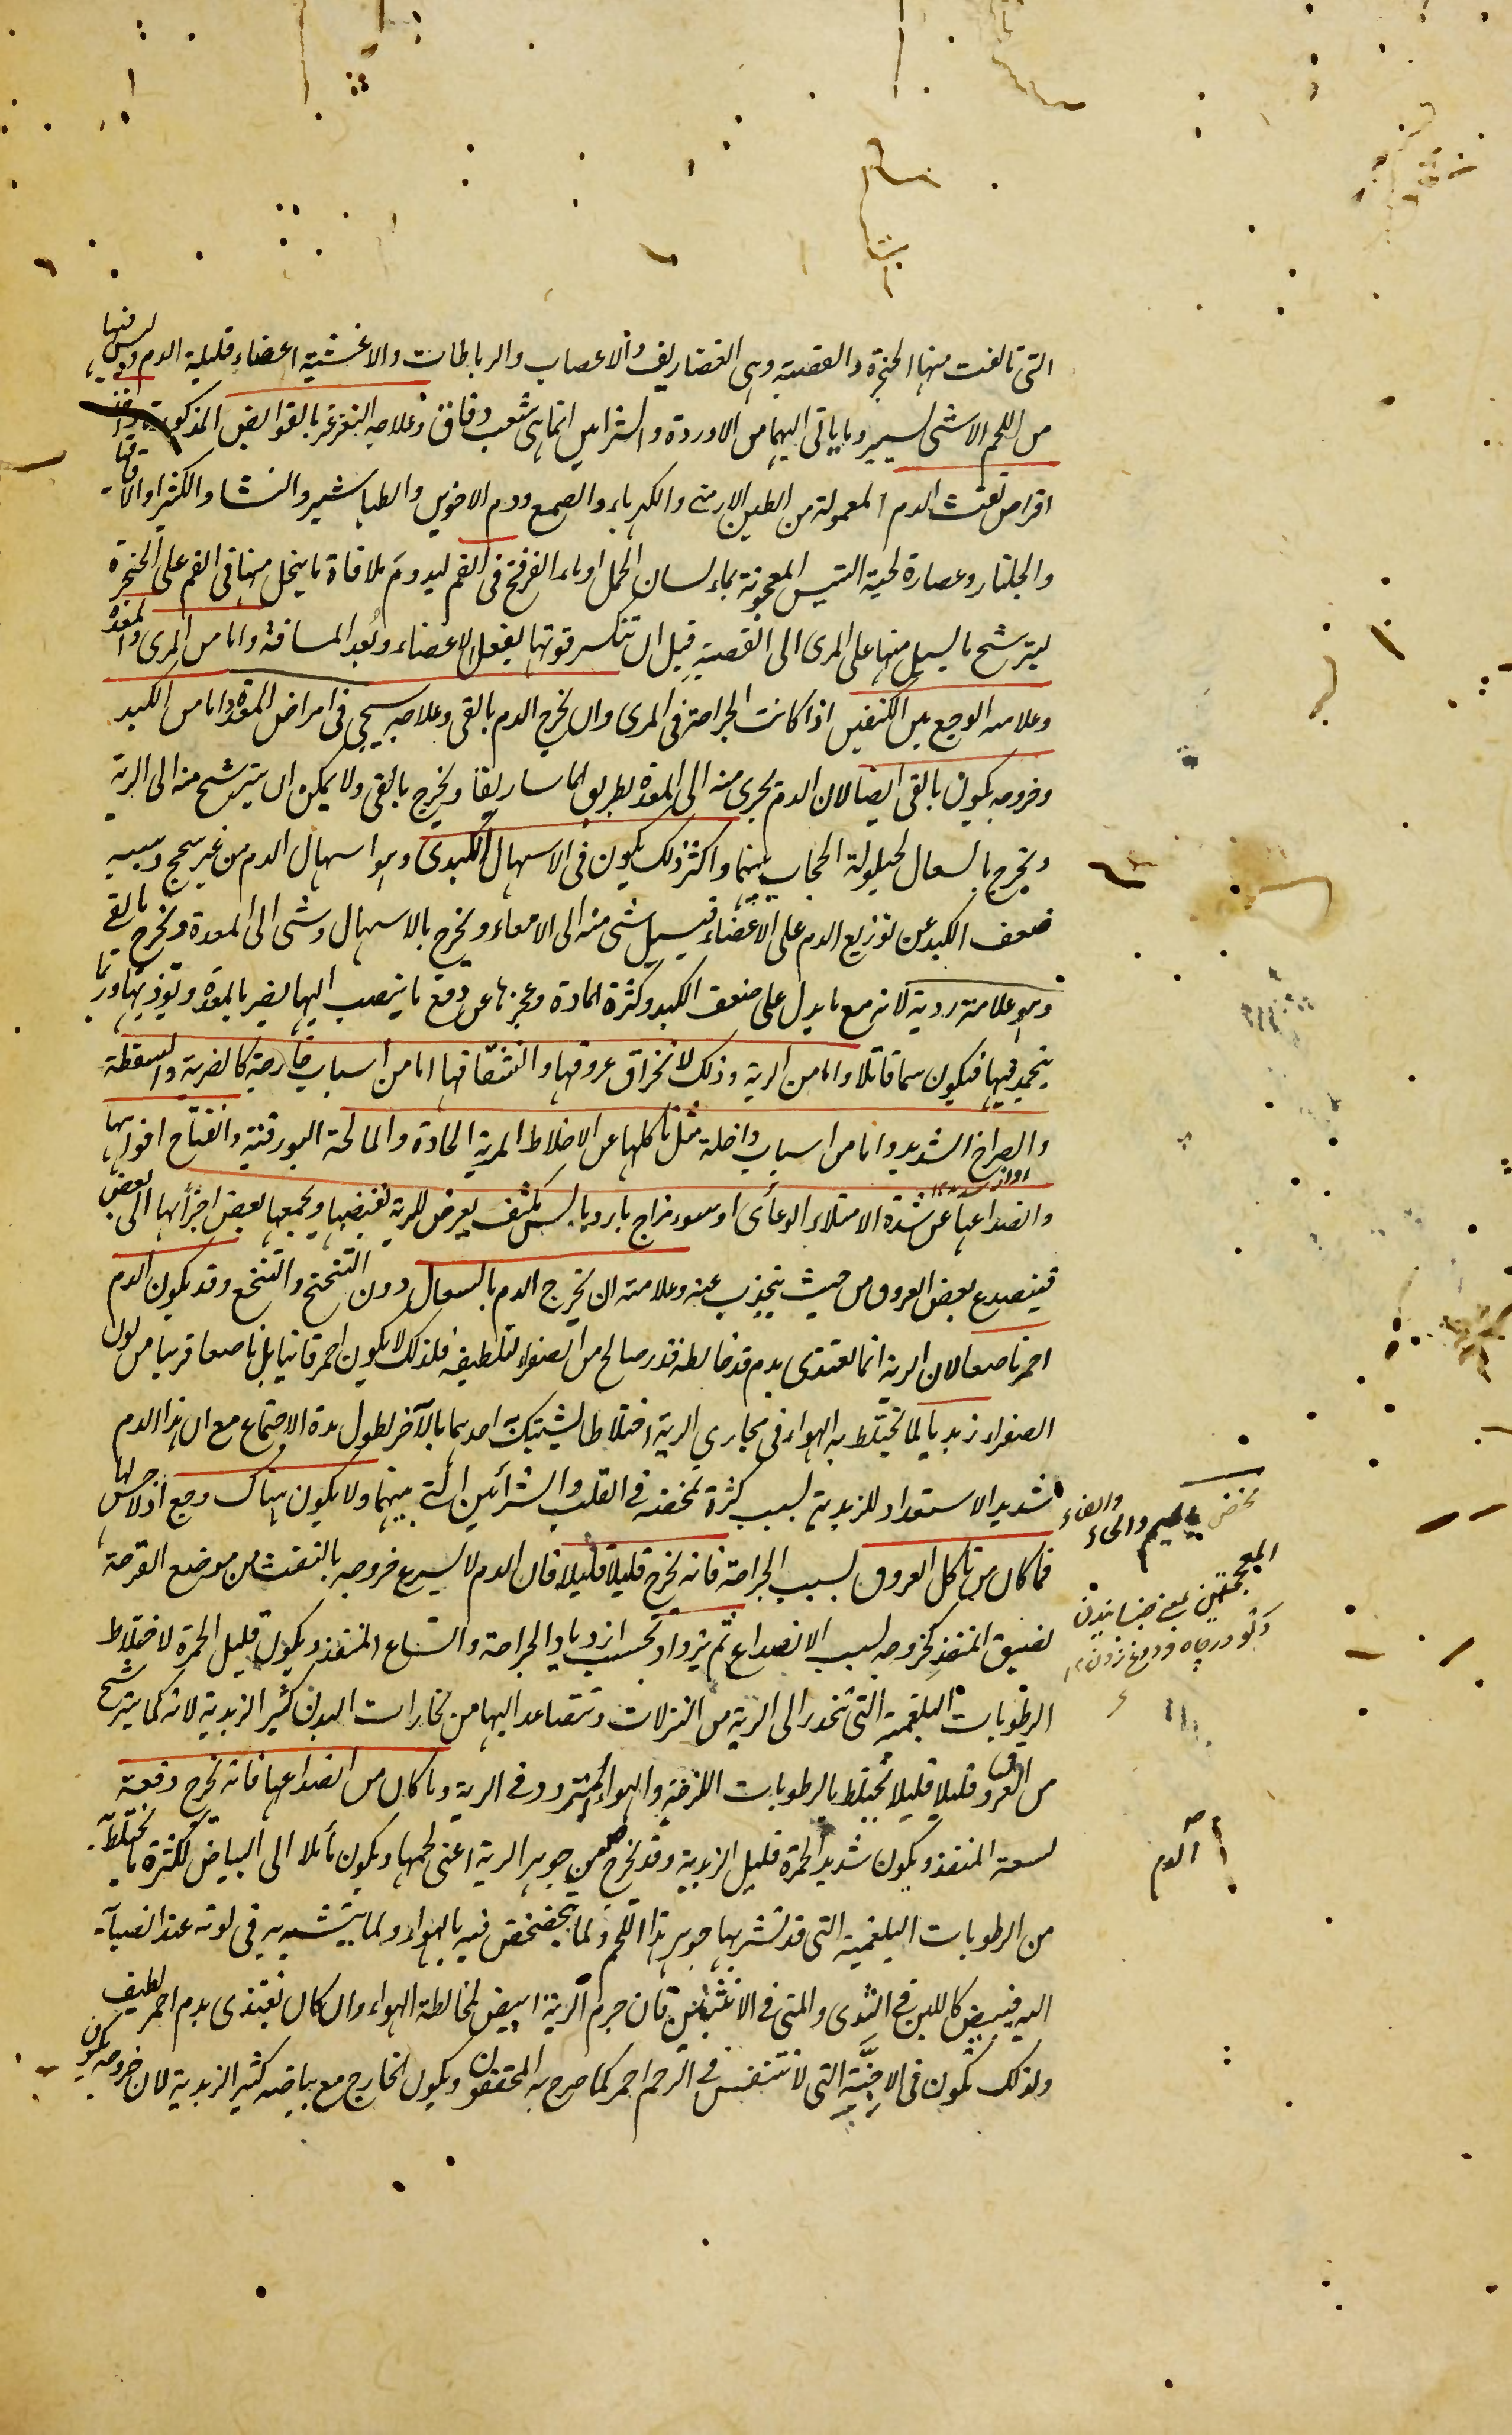 التى تالفت منها الحنجرة والقصبة وهى الغضاريف والاعصاب والرباطات والاغشية اعضاء قليلة الدم وليس فيها
من اللحم الا شئ يسير وما ياتى اليهما من الاوردة والشرايين انما هى شعب دقاق وعلاجه التغرغر بالقوابض المذكورة واخذ
اقراص نفث الدم المعمولة من الطين الارمنى والكهرباء والصمغ ودم الاخوين والطباشير والنشا والكثيرا والاقاقيا
والجلنار وعصارة لحية التيس المعجونة بماء لسان الحمل او ماء الفرفخ فى الفم ليدوم ملاقاة ما ينحل منها فى الفم على الحنجرة
ليترشح ما يسيل منها على المرى الى القصبة قبل ان تنكسر قوتها بفعل الاعضاء وبعد المسافة واما من المرى والمعدة
وعلامته الوجع بين الكتفين اذا كانت الجراحة فى المرى وان يخرج الدم بالقى وعلاجه سيجى فى امراض المعدة واما من الكبد
وخروجه يكون بالقى ايضا لان الدم يجرى منه الى المعدة بطريق الماساريقا ويخرج بالقى ولا يمكن ان يترشح منه الى الرية
ويخرج بالسعال لحيلولة الحجاب بينهما واكثر ذلك يكون فى الاسهال الكبدى وهو اسهال الدم من غير سحج وسببه
ضعف الكبد عن توزيع الدم على الاعضاء فيسيل شئ منه الى الامعاء ويخرج بالاسهال وشئ الى المعدة ويخرج بالقے
وهو علامة ردية لانه مع ما يدل على ضعف الكبد وكثرة المادة وعجزها عن دفع ما ينصب اليها يضر بالمعدة ويؤذيها وربما
ينجمد فيها فيكون سما قاتلا واما من الرية وذلك لانخراق عروقها وانشقاقها اما من اسباب خارجية كالضربة والسقطة
والصراخ الشديد واما من اسباب داخلة مثل تاكلها عن الاخلاط المرية الحادة والمالحة البورقية وانفتاح افواهها
وانصداعها عن شدة الامتلاء الوعائى او سوء مزاج بارد يابس مكثف يعرض للرية فيقبضها ويجمعها بعض اجزائها الى بعض
فينصدع بعض العروق من حيث ينجذب عنه وعلامته ان يخرج الدم بالسعال دون التنحنح والتنخع وقد يكون الدم
احمر ناصعا لان الرية انما تغتذى بدم قد خالطه قدر صالح من الصفراء لتلطيفه فلذلك لا يكون احمر قانيا بل ناصعا قريبا من لون
الصفراء زبديا لما يختلط به الهواء فى مجارى الرية اختلاطا يشتبك به احدهما بالآخر لطول مدة الاجتماع مع ان هذا الدم
شديد الاستعداد للزبدية بسبب كثرة تمخضه فے القلب والشرائين التے بينهما ولا يكون هناك وجع اذ لا حس لها
فما كان من تاكل العروق بسبب الجراحة فانه يخرج قليلا قليلا فان الدم لا يسرع خروجه بالنفث من موضع القرحة
لضيق المنفذ كخروجه بسبب الانصداع ثم يزداد بحسب ازدياد الجراحة واتساع المنفذ ويكون قليل الحمرة لاختلاط
الرطوبات البلغمية التى تنحدر الى الرية من النزلات وتتصاعد اليها من بخارات البدن كثير الزبدية لانه كما يترشح
من العروق قليلا قليلا يختلط بالرطوبات اللزجة والهواء المتردد فے الرية وما كان من انصداعها فانه يخرج دفعة
لسعة المنفذ ويكون شديد الحمرة قليل الزبدية وقد يخرج من جوهر الرية اعنى لحمها ويكون مائلا الى البياض لكثرة ما يختلط به
من الرطوبات البلغمية التى قد تشربها جوهر هذا اللحم ولما يتخضخض فيه بالهواء ولما يتشبه به فى لونه عند انصبابه
اليه فيبيض كاللبن فے الثدى والمنى فے الانثيين فان جرم الرية ابيض لمخالطة الهواء وان كان تغتذى بدم احمر لطيف
ولذلك تكون فى الاجنة التى لا تتنفس فے الرحم احمر كما صرح به المحققون ويكون الخارج مع بياضه كثير الزبدية لان خروجه يكون
مخض بالميم والخاء والضاد
المعجمتين بمعنى جنبانيدن
دلو در چاه ودوغ زدن
الدم